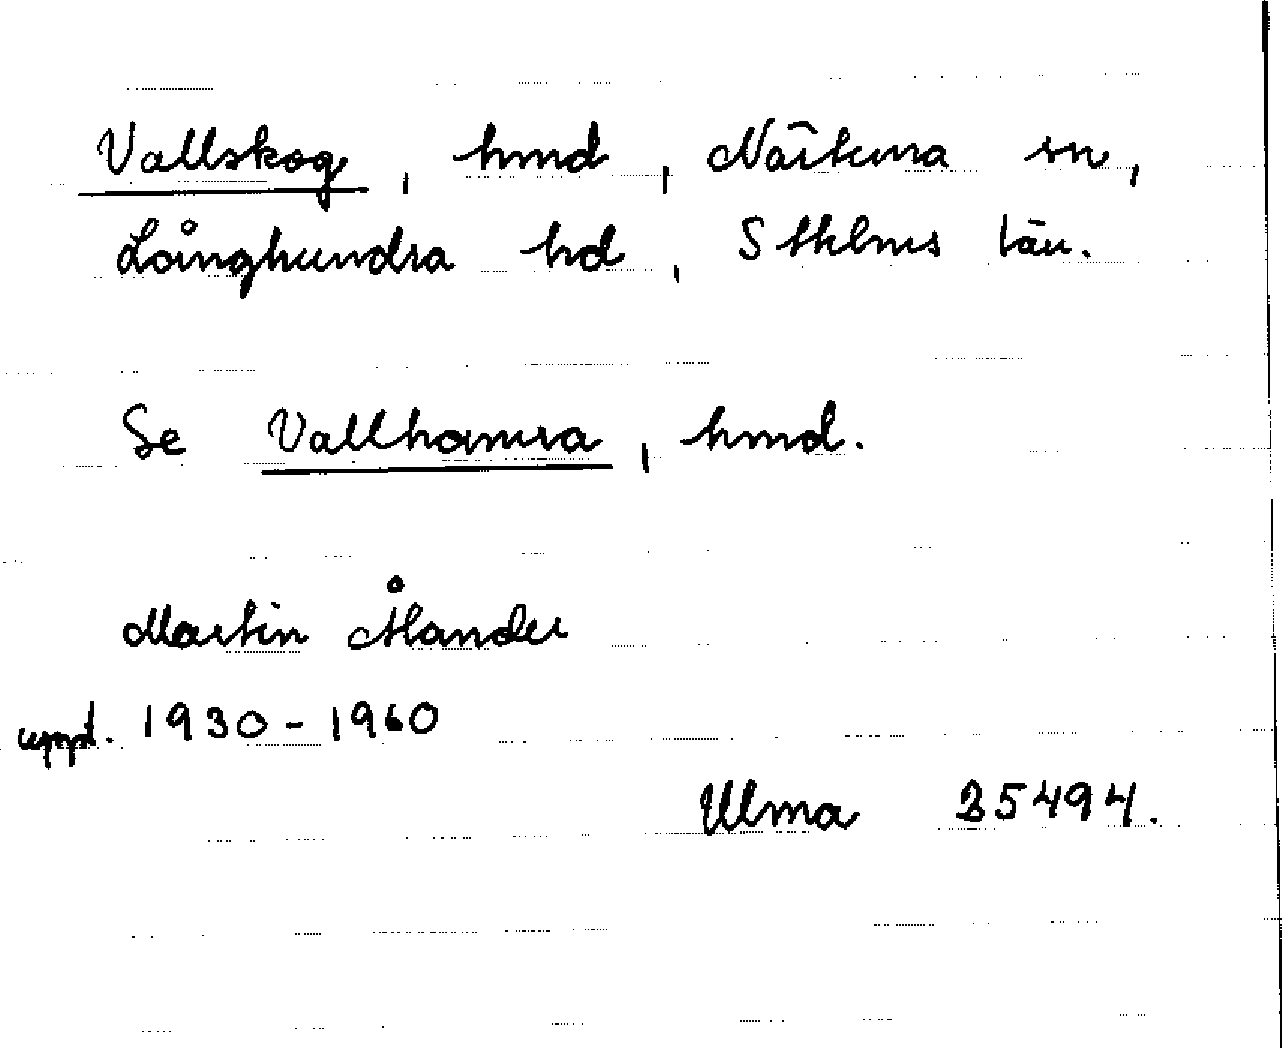 Vallskog, hmd, Närtuna sn,
Långhundra hd, Sthlms län.
Se Vallhamra, hmd.
Martin Ålander
uppt. 1930-1960
Ulma 25494.